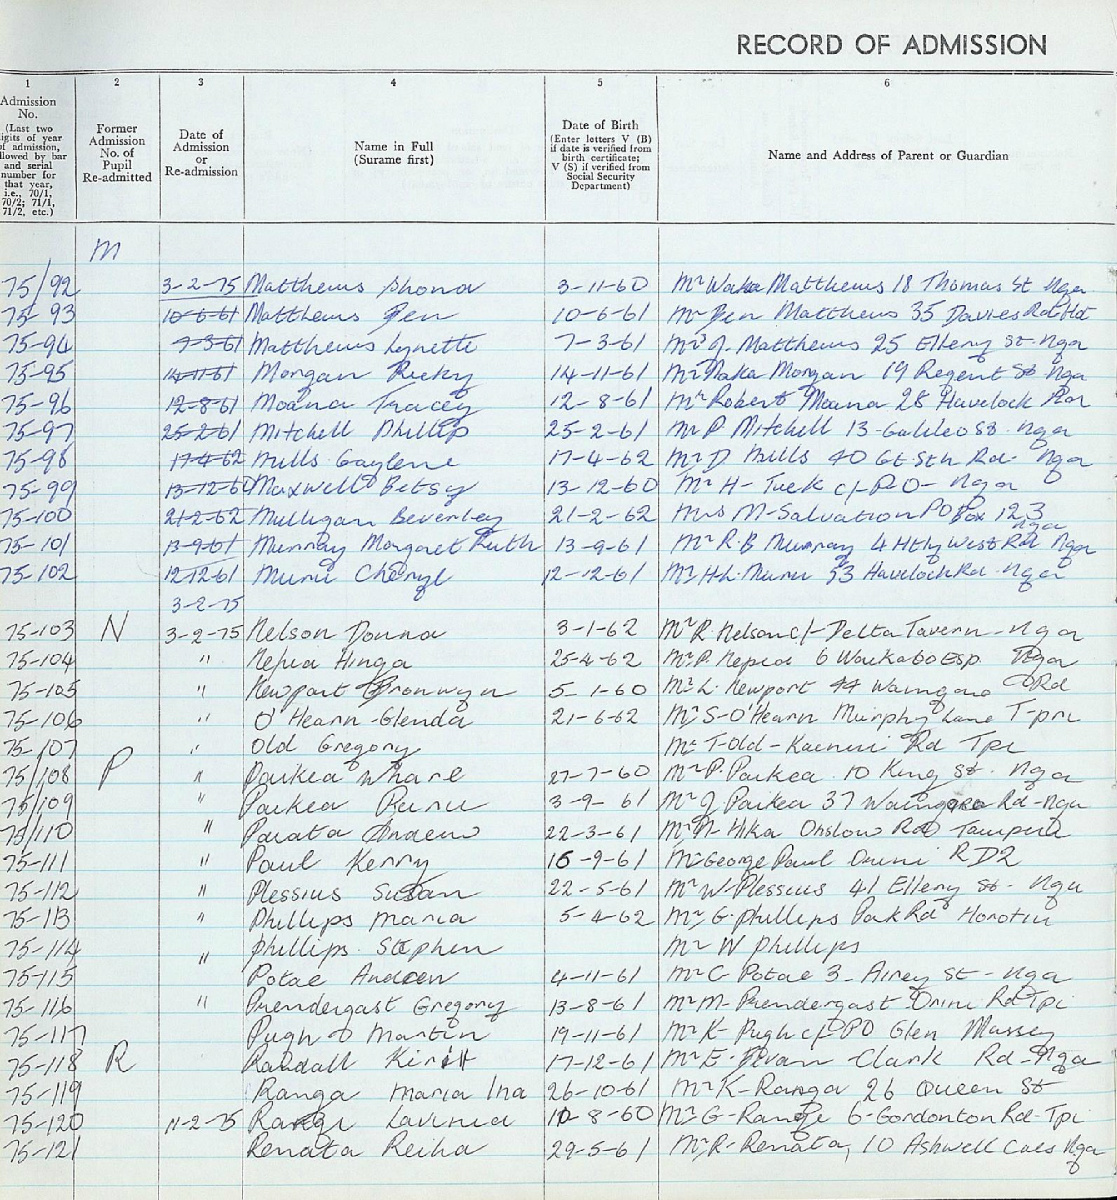 RECORD OF ADMISSION
1 2 3 4 5 6
Admission No. (Last two digits of year of admission, followed by bar and serial number for that year, i.e., 70/1, 70/2; 71/1, 71/2, etc.)
Former Admission No. of Pupil Re-admitted
Date of Admission or Re-admission
Name in Full (Surame first)
Date of Birth (Enter letters V (B) if date is verified from birth certificate; V (S) if verified from Social Security Department)
Name and Address of Parent or Guardian
M
75/92 3-2-75 Matthews Shona 3-11-60 Mr Waka Matthews 18 Thomas St Nga
75-93 10-6-61 Matthews Ben 10-6-61 Mr Ben Matthews 35 Davies Rd
75-94 7-3-61 Matthews Lynette 7-3-61 Mr J. Matthews 25 Ellery St. Nga
75-95 14-11-61 Morgan Ricky 14-11-61 Mr Naka Morgan 19 Regent St Nga
75-96 12-8-61 Moana Tracey 12-8-61 Mr Robert Moana 28 Havelock
75-97 25-2-61 Mitchell Phillip 25-2-61 Mr P Mitchell 13-Galileo St. Nga
75-98 17-4-62 Mills Gaylene 17-4-62 Mr D Mills 40 Gt Sth Rd- Nga
75-99 13-12-60 Maxwell Betsy 13-12-60 Mr H- Tuck c/- P.O- Nga
75-100 21-2-62 Mulligan Beverley 21-2-62 Mrs M-Salvation PO Box 123 Nga
75-101 13-9-61 Murray Margaret Ruth 13-9-61 Mr R.B Murray 4 Htly West Rd Nga
75-102 12-12-61 Muru Cheryl 12-12-61 Mr H.L. Muru 53 Havelock Rd. Nga
3-2-75
75-103 N 3-2-75 Nelson Donna 3-1-62 Mr R. Nelson c/- Delta Tavern-Nga
75-104 " Nepia Hinga 25-4-62 Mr P. Nepia 6 Esp. Nga
75-105 " Newport Bronwyn 5-1-60 Mr L. Newport 44 Waingaro Rd
75-106 " O'Hearn-Glenda 21-6-62 Mr S-O'Hearn Murphy Lane T-pri
75-107 " Old Gregory Mr T-Old- Rd Tpi
75/108 P " Paikea Whare 27-7-60 Mr P. Paikea 10 King St. Nga
75/109 " Paikea Ruru 3-9-61 Mr J Paikea 37 Waingaro Rd-Nga
75/110 " Parata Andrew 22-3-61 Mr N-Hika Onslow Rd Taupiri
75-111 " Paul Kerry 16-9-61 Mr George Paul Orini RD2
75-112 " Plessius Susan 22-5-61 Mr W-Plessius 41 Ellery St- Nga
75-113 " Phillips Maria 5-4-62 Mr G-Phillips Park Rd Horotiu
75-114 " Phillips Stephen Mr W Phillips
75-115 Potae Andrew 4-11-61 Mr C Potae 3-Airey St-Nga
75-116 " Prendergast Gregory 13-8-61 Mr M-Prendergast Orini Rd Tpi
75-117 Pugh Martin 19-11-61 Mr K-Pugh c/-PO Glen Massey
75-118 R Randall 17-12-61 Mr E- Clark Rd-Nga
75-119 Ranga Maria Ina 26-10-61 Mr K-Ranga 26 Queen St
75-120 11-2-75 Rangi Lavinia 10-8-60 Mr G-Rangi 6-Gordonton Rd-Tpi
75-121 Renata Reiha 29-5-61 Mr R-Renata, 10 Ashwell Cres Nga